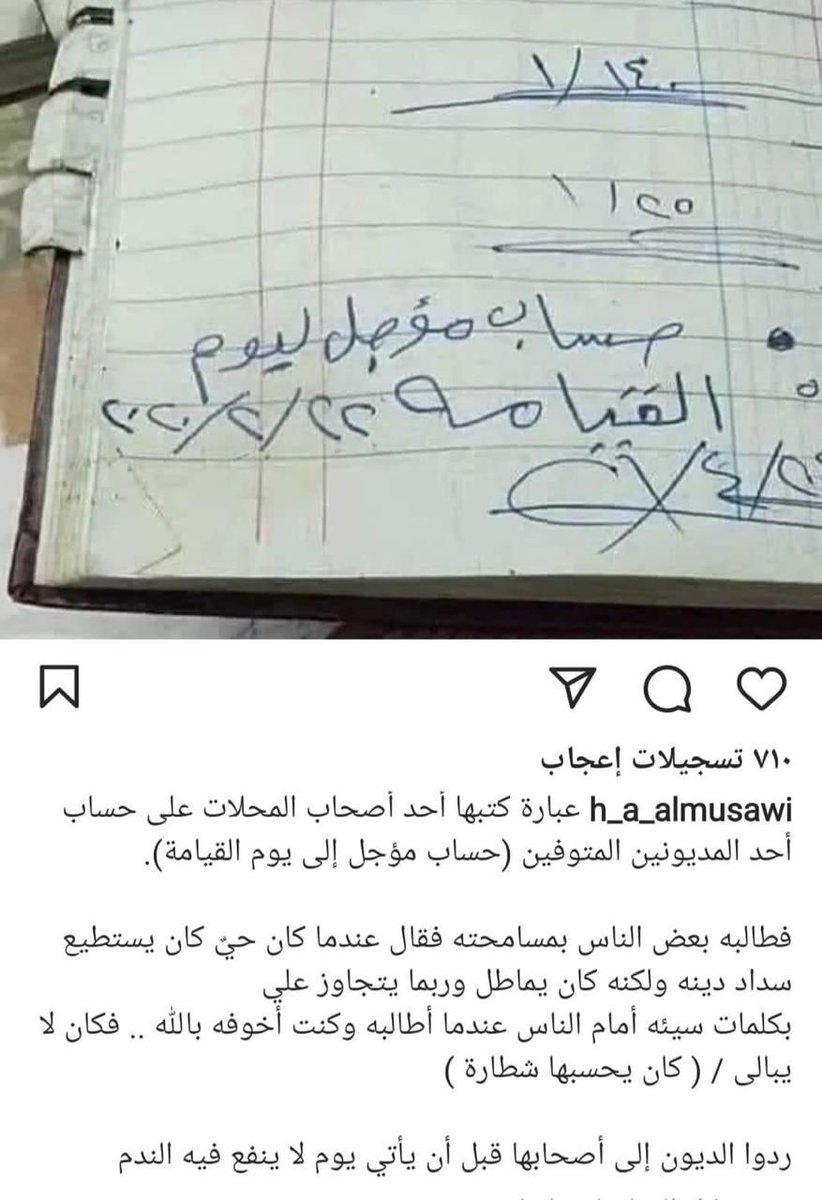 ١/١٤٠
١١٢٥
حساب مؤجل ليوم
القيامه ٢٢/٢/٢٠٢٠
٧١٠ تسجيلات إعجاب
h_a_almusawi عبارة كتبها أحد أصحاب المحلات على حساب
أحد المديونين المتوفين (حساب مؤجل إلى يوم القيامة).
فطالبه بعض الناس بمسامحته فقال عندما كان حيٌ كان يستطيع
سداد دينه ولكنه كان يماطل وربما يتجاوز علي
بكلمات سيئه أمام الناس عندما أطالبه وكنت أخوفه بالله .. فكان لا
يبالى / ( كان يحسبها شطارة )
ردوا الديون إلى أصحابها قبل أن يأتي يوم لا ينفع فيه الندم